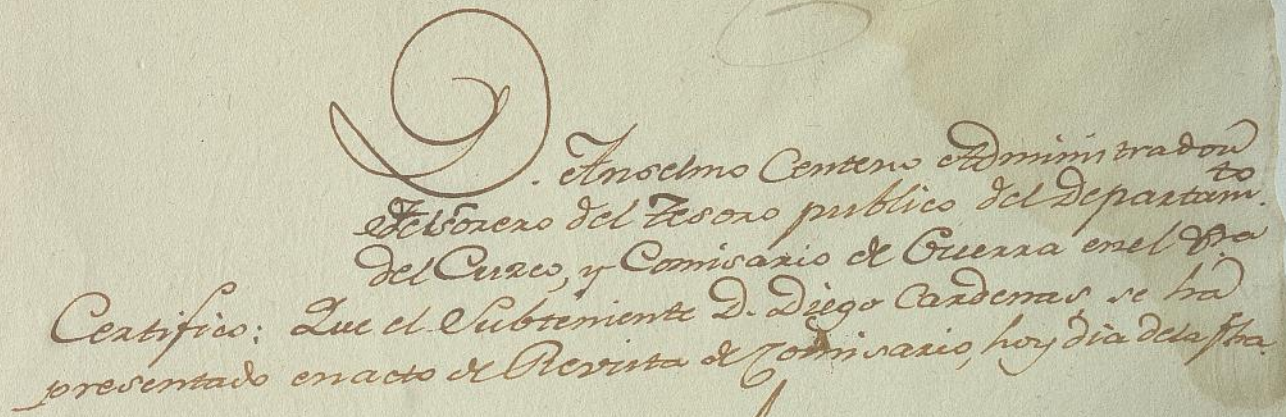 D. Anselmo Centeno Administrador
Tesorero del Tesoro publico del Departam.to
del Cuzco, y Comisario de Guerra en el
Certifico: Que el Subteniente D. Diego Cardenas, se há
presentado en acto de Revista de Comisario, hoy dia de la fha.